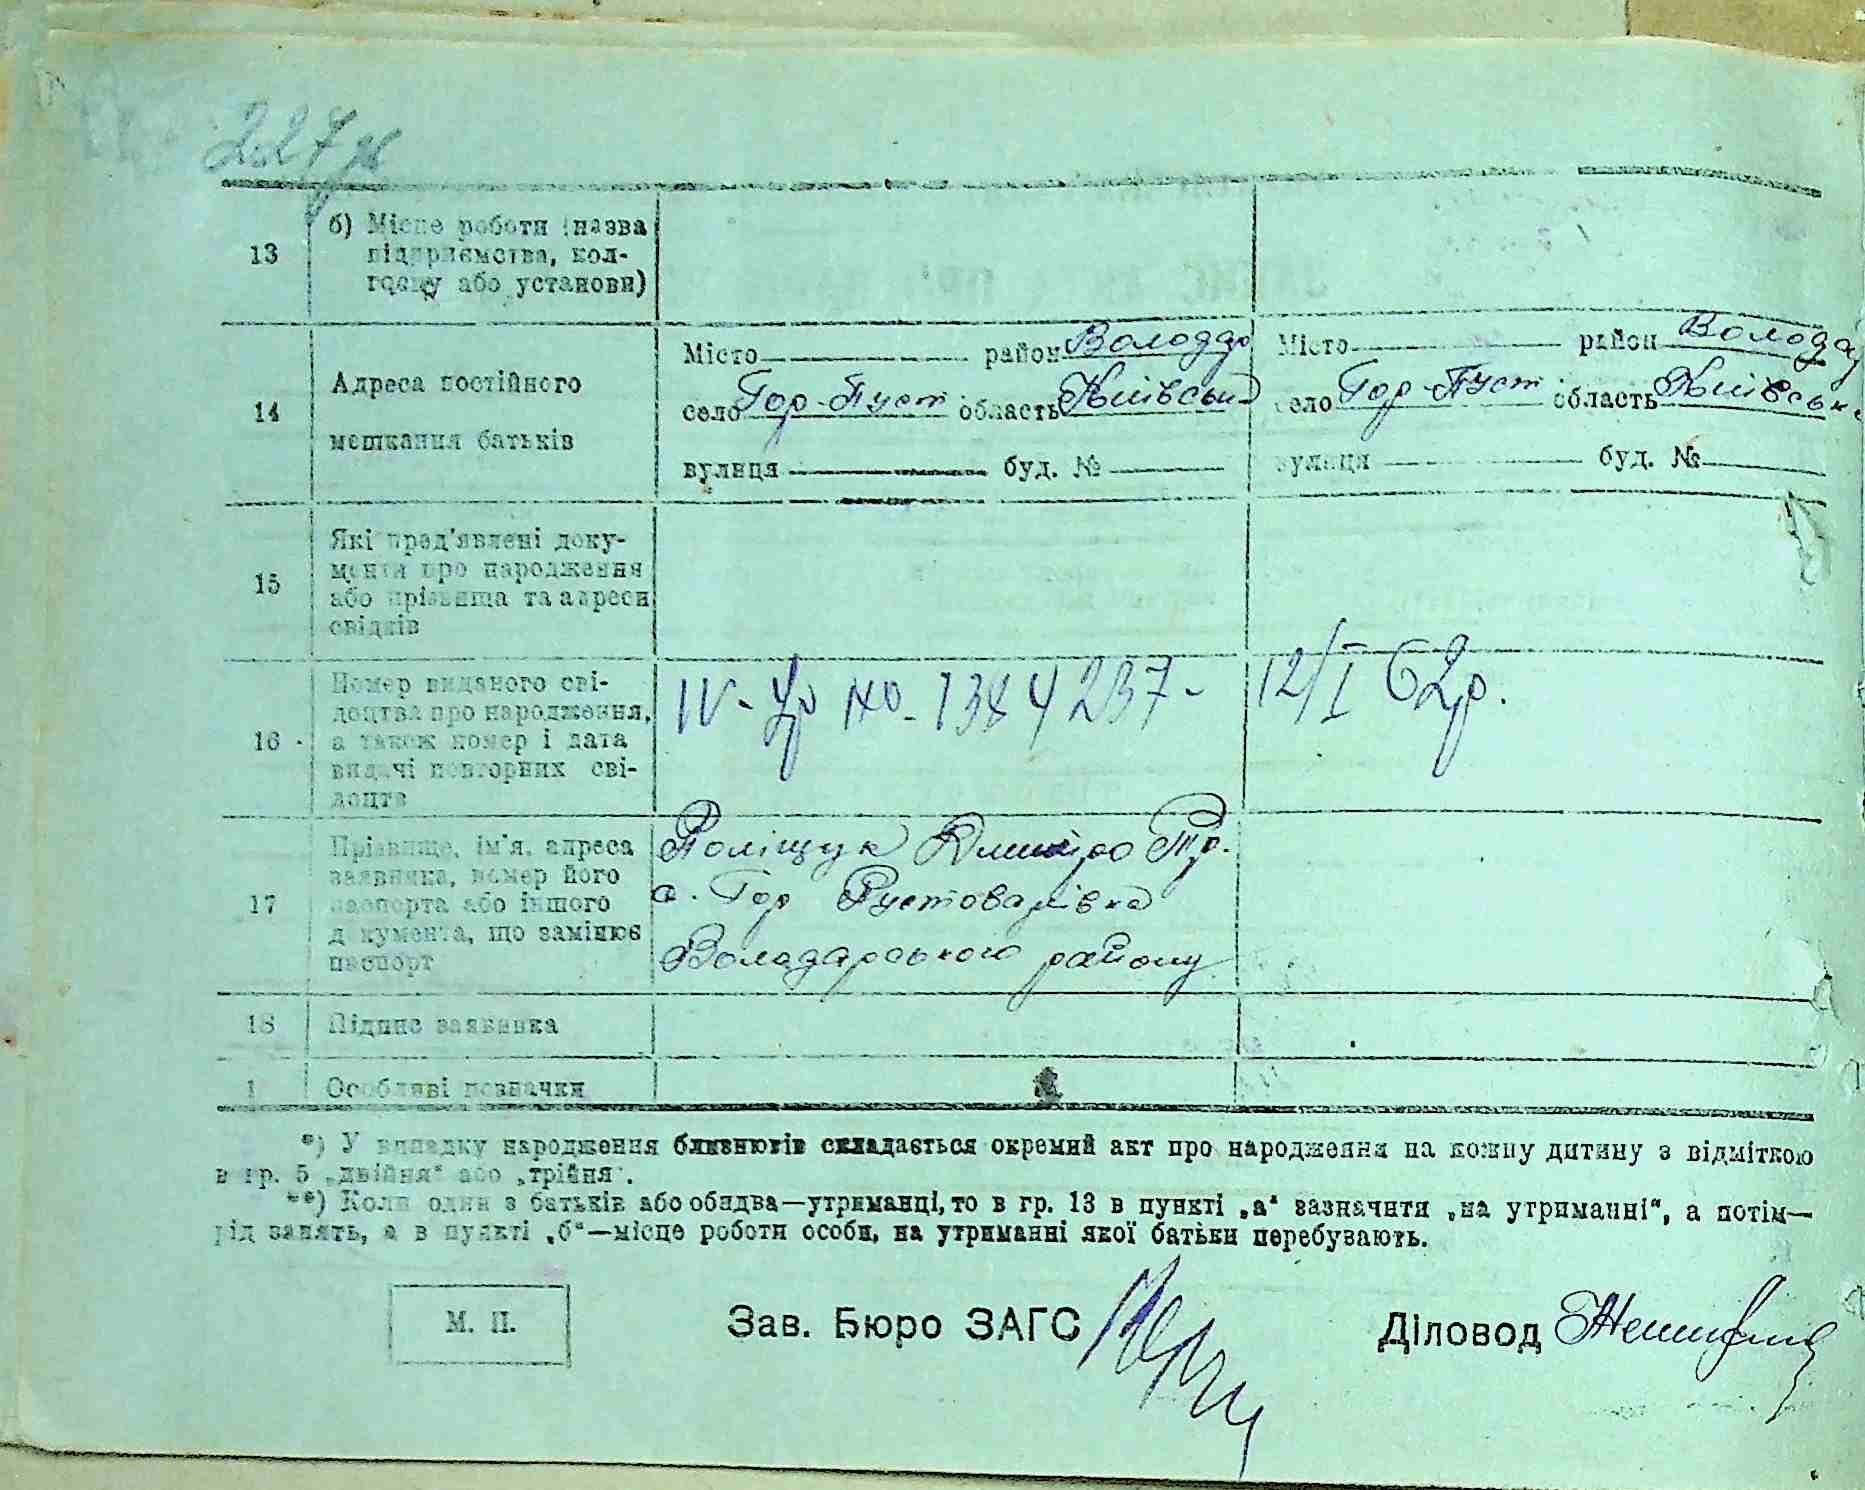 227
13
б) Місце роботи (назва
підприємства, кол-
госпу або установи)
14
Адреса постійного
мешкання батьків
Місто район Володар
село Гор-Пуст область Київськ
вулиця буд. №
Місто район Володар
село Гор-Пуст область Київськ
вулиця буд. №
15
Які пред'явлені доку-
менти про народження
або прізвища та адреси
свідків
16
Номер виданого сві-
доцтва про народження,
а також номер і дата
видачі повторних сві-
доцтв
IV- No-1344237-
12/I 62р.
17
Прізвище, ім'я, адреса
заявника, номер його
паспорта або іншого
документа, що замінює
паспорт
Поліщук Дмитро Тр.
с. Гор Пустоварівка
Володарського району
18
Підпис заявника
1
Особливі позначки
*) У випадку народження близнюків складається окремий акт про народження на кожну дитину з відміткою
в гр. 5 „двійня“ або „трійня“.
**) Коли один з батьків або обидва—утриманці, то в гр. 13 в пункті „а“ зазначити „на утриманні“, а потім—
рід занять, а в пункті „б“—місце роботи особи, на утриманні якої батьки перебувають.
М. П.
Зав. Бюро ЗАГС
Діловод